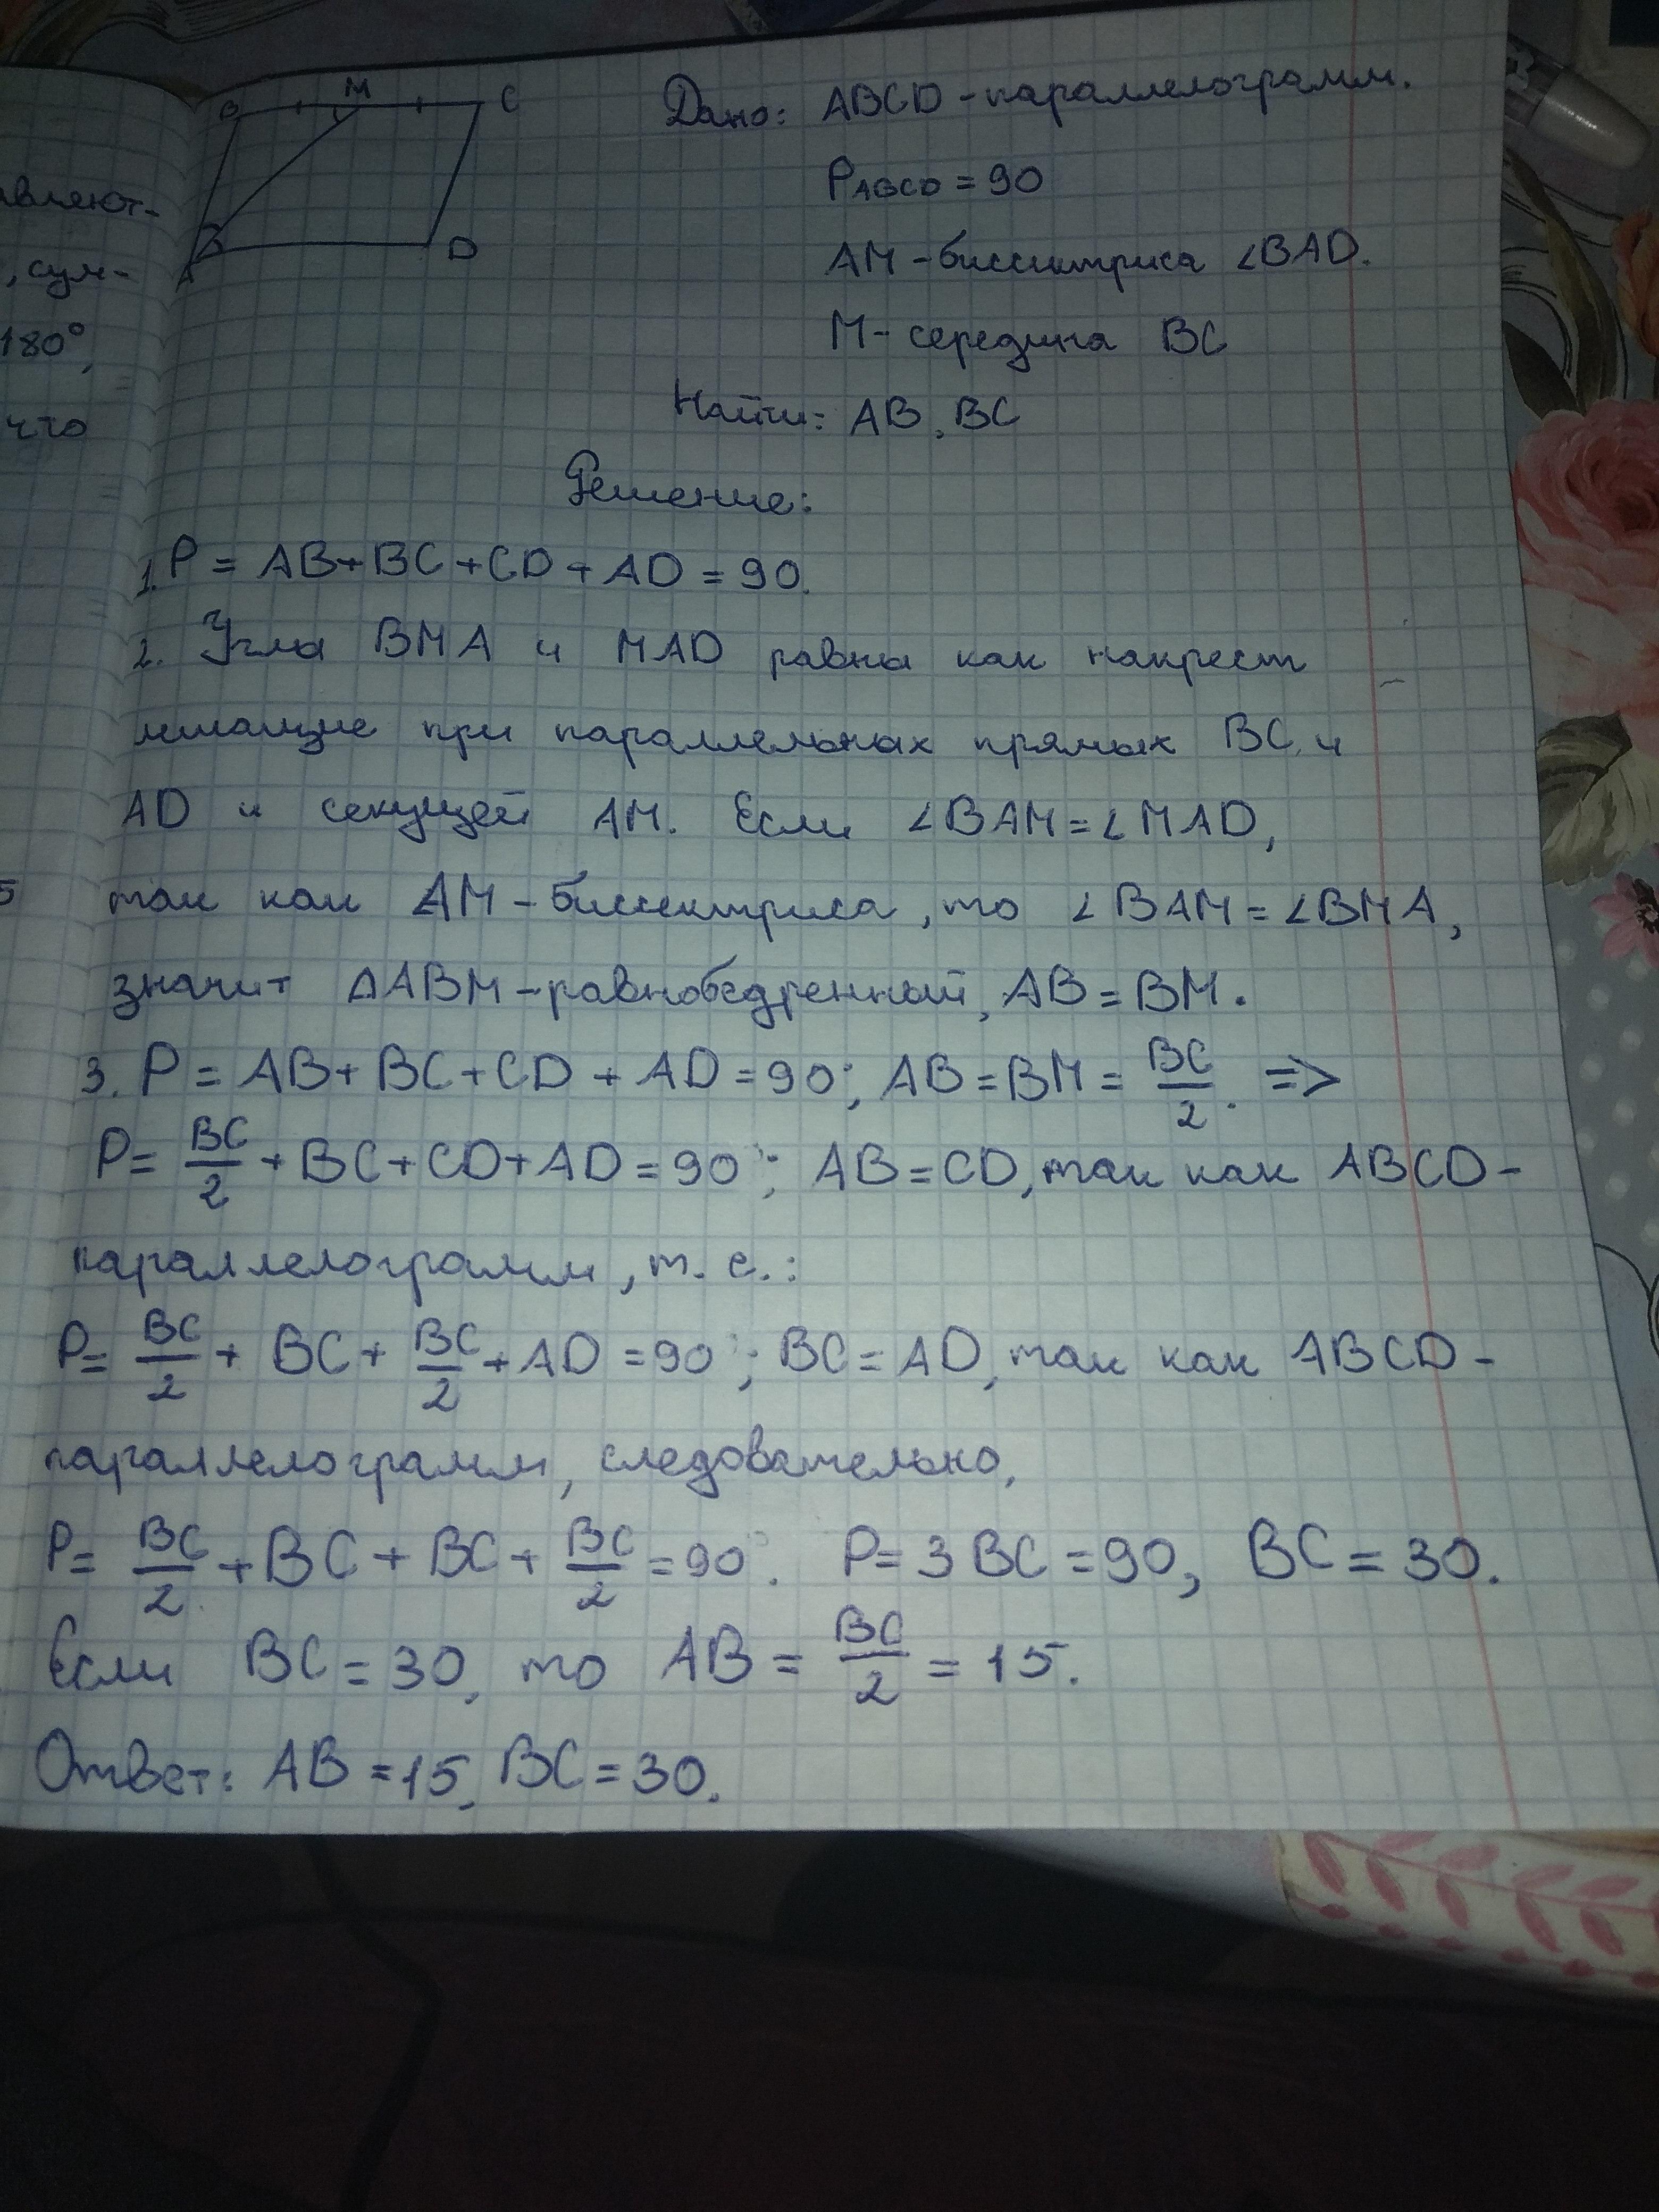 M
C
D
A
Дано: ABCD - параллелограмм.
PABCD = 90
AM - биссектриса ∠BAD.
M - середина BC
Найти: AB, BC
Решение:
1. P = AB + BC + CD + AD = 90.
2. Углы BMA и MAD равны как накрест
лежащие при параллельных прямых BC и
AD и секущей AM. Если ∠BAM = ∠MAD,
так как AM - биссектриса, то ∠BAM = ∠BMA,
значит ΔABM - равнобедренный, AB = BM.
3. P = AB + BC + CD + AD = 90; AB = BM = BC/2. =>
P = BC/2 + BC + CD + AD = 90; AB = CD, так как ABCD -
параллелограмм, т. е.:
P = BC/2 + BC + BC/2 + AD = 90; BC = AD, так как ABCD -
параллелограмм, следовательно,
P = BC/2 + BC + BC + BC/2 = 90. P = 3BC = 90, BC = 30.
Если BC = 30, то AB = BC/2 = 15.
Ответ: AB = 15, BC = 30.
, сум-
180°,
что